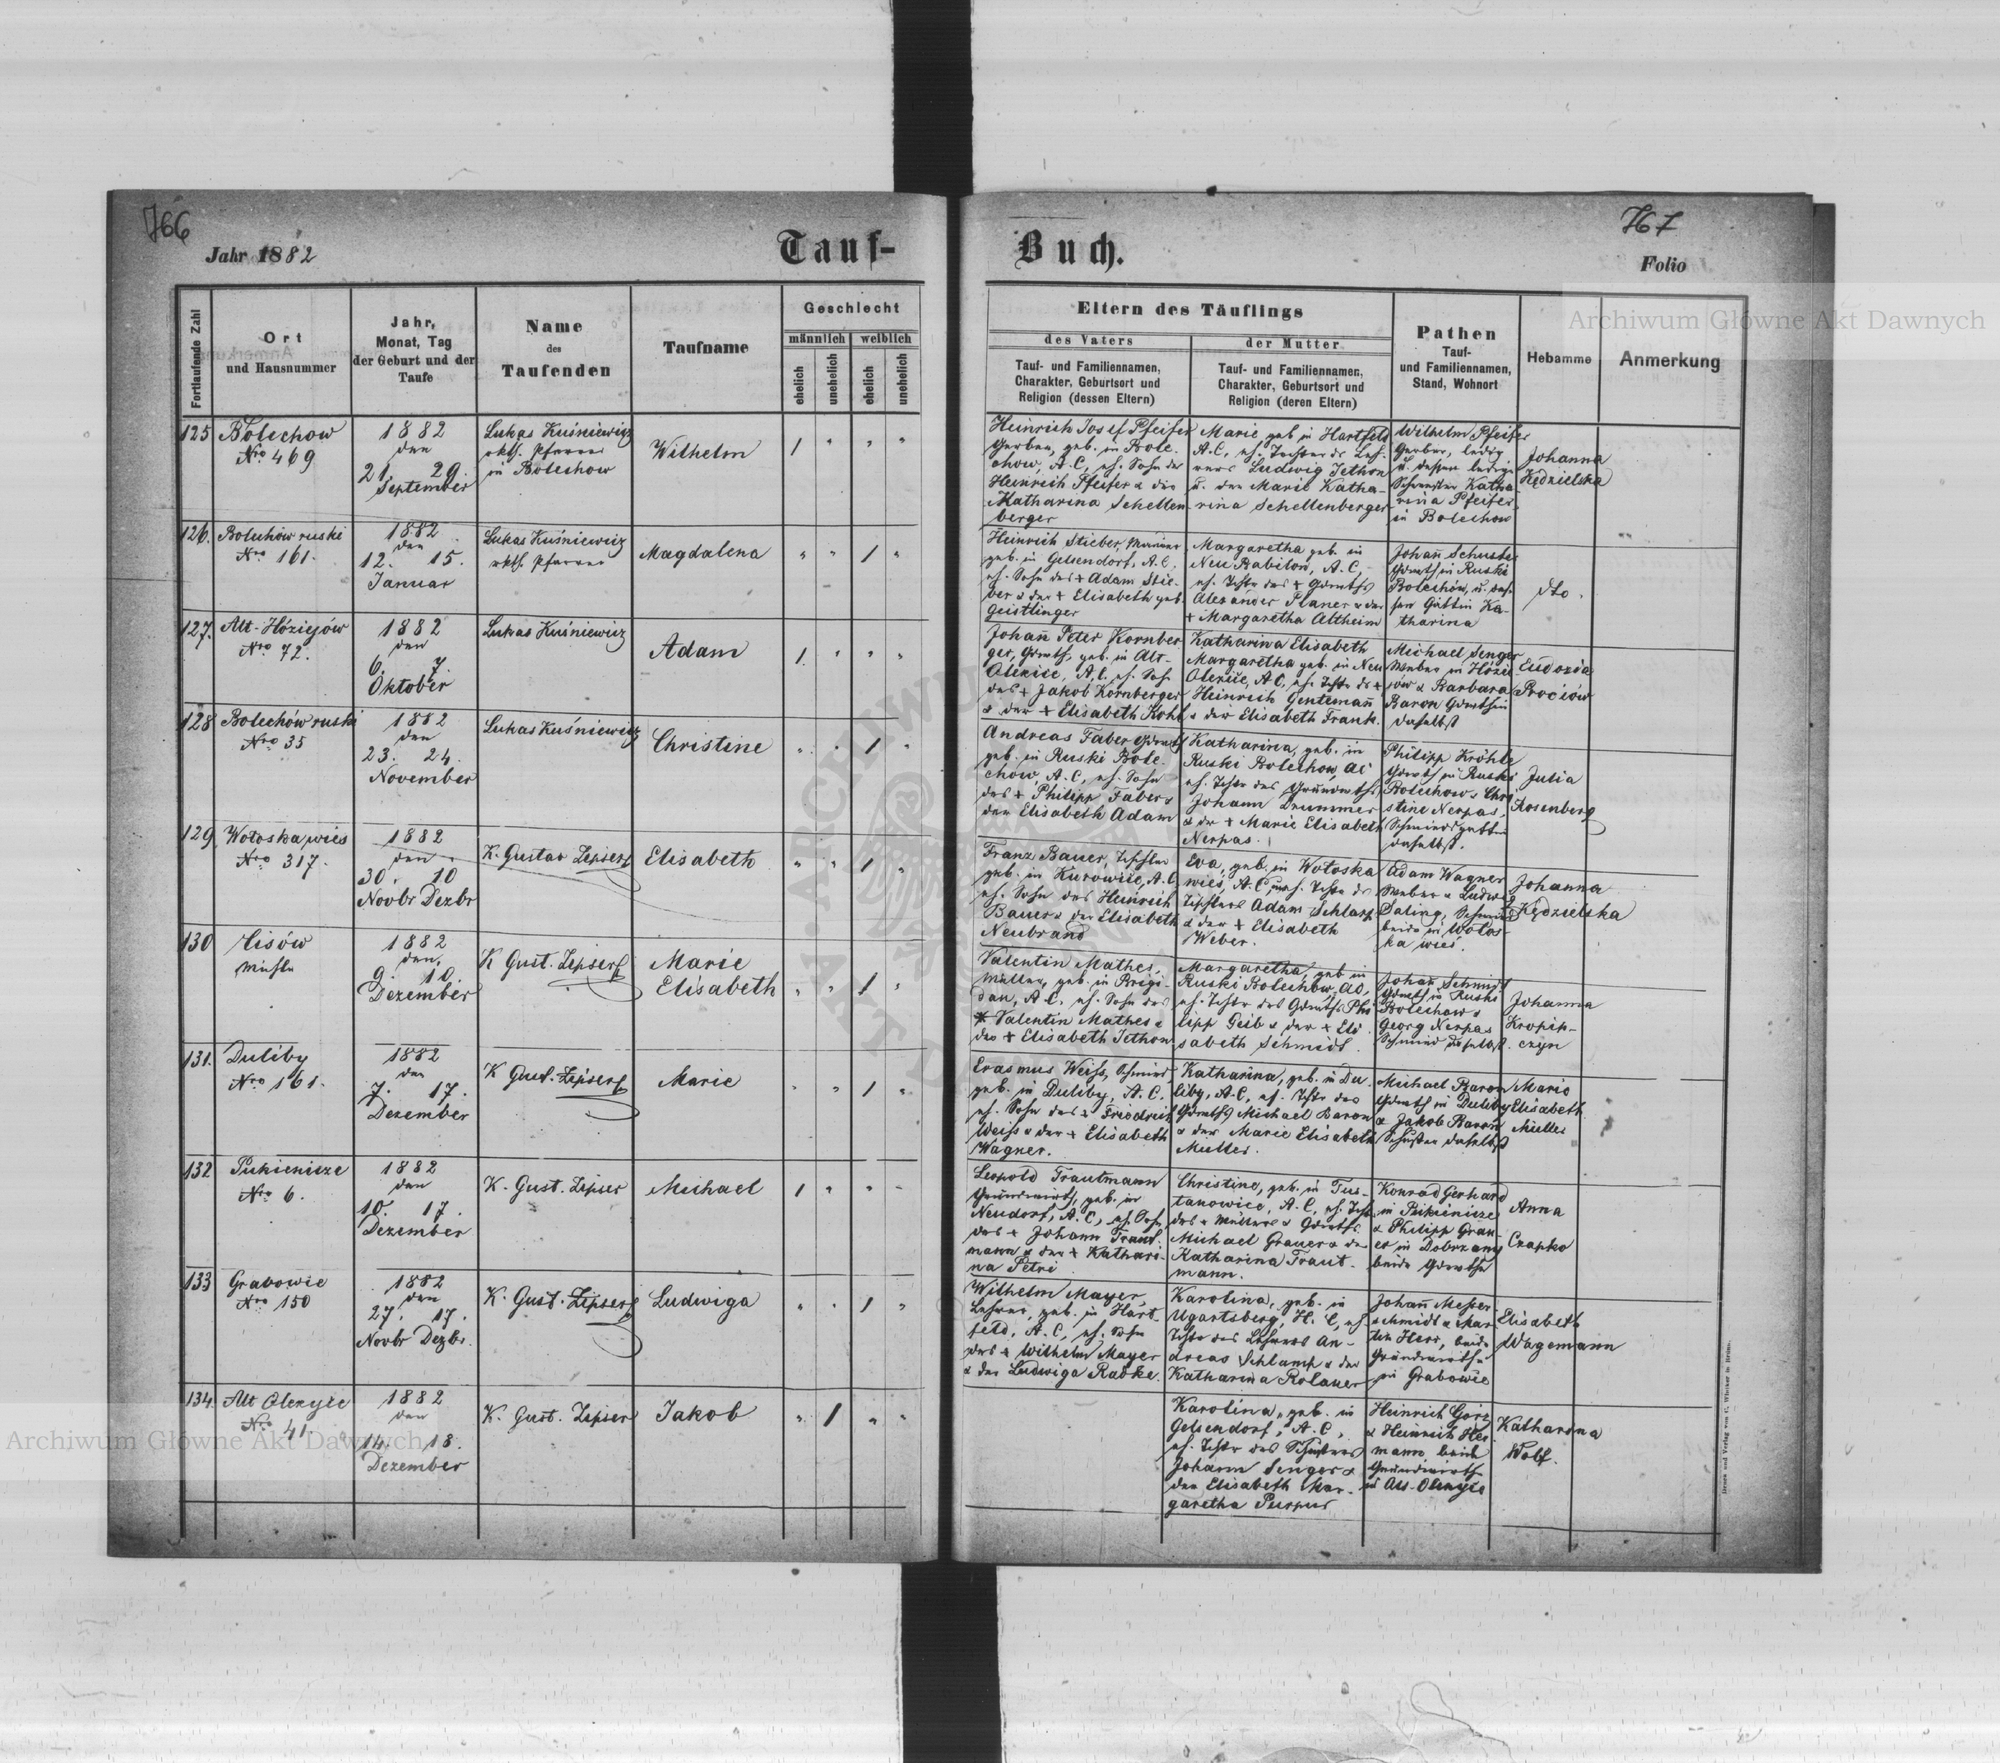 766
767
Jahr 1882
Tauf-
Buch.
Folio
Fortlaufende Zahl
Ort
und Hausnummer
Jahr,
Monat, Tag
der Geburt und der
Taufe
Name
des
Taufenden
Taufname
Geschlecht
männlich
weiblich
ehelich
unehelich
ehelich
unehelich
Eltern des Täuflings
des Vaters
Tauf- und Familiennamen,
Charakter, Geburtsort und
Religion (dessen Eltern)
der Mutter
Tauf- und Familiennamen,
Charakter, Geburtsort und
Religion (deren Eltern)
Pathen
Tauf-
und Familiennamen,
Stand, Wohnort
Hebamme
Anmerkung
125
Bolechow
Nro 469
1882
den
21. 29.
September
Lukas Kuśniewicz
rkth. Pfarrer
in Bolechow
Wilhelm
1 " " "
Heinrich Josef Pfeifer
Gerber, geb. in Bole-
chow, A.C, eh. Sohn des
Heinrich Pfeifer & der
Katharina Schellen
berger
Marie geb in Hartfeld
A.C, eh. Tochter des Leh-
rers Ludwig Jethon
u. der Marie Katha-
rina Schellenberger
Wilhelm Pfeifer
Gerber, ledig
u. dessen ledige
Schwester Katha-
rina Pfeifer
in Bolechow
Johanna
Kędzielska
126.
Bolechów ruski
Nro 161.
1882
den
12. 15.
Januar
Lukas Kuśniewicz
rkth. Pfarrer
Magdalena
" " 1 "
Heinrich Stieber,
geb. in Gelsendorf, A.C,
eh. Sohn des + Adam Stie-
ber & der + Elisabeth geb.
Geistlinger
Margaretha geb. in
Neu Babilon, A.C,
eh. Tchtr des + Grdwrths
Alexander Planer & der
+ Margaretha Altheim
Johañ Schuster
Grdwrth in Ruski
Bolechów, u. des-
sen Gattin Ka-
tharina
dto.
127.
Alt-Hóziejów
Nro 72.
1882
den
6. 7.
Oktober
Lukas Kuśniewicz
Adam
1 " " "
Johañ Peter Kornber
ger, Grdwrth, geb. in Alt-
Olexice, A.C, eh. Sohn
des + Jakob Kornberger
& der + Elisabeth Kohl
Katharina Elisabeth
Margaretha geb. in Neu
Olexice, A.C, eh. Tchtr ds +
Heinrich Gentemañ
& der Elisabeth Frank.
Michael Senger
Weber in Hózie
jów & Barbara
Baron Grdwrthin
daselbst
Eudoxia
Prociów
128
Bolechów ruski
Nro 35
1882
den
23. 24.
November
Lukas Kuśniewicz
Christine
" " 1 "
Andreas Faber Grdwrth
geb. in Ruski Bole-
chow, A.C, eh. Sohn
des + Philipp Faber &
der Elisabeth Adam
Katharina, geb. in
Ruski Bolechow, AC
eh. Tchtr des Grundwrths
Johann Drummer
& der + Marie Elisabeth
Nerpas.
Philipp Kröhle
Grdwrth in Ruski
Bolechow & Chri
stine Nerpas,
Schmiedsgattin
daselbst.
Julia
Rosenberg
129
Wołoska wieś
Nro 317.
1882
den
30. 10
Novbr Dezbr
K. Gustav Zipser
Elisabeth
" " 1 "
Franz Bauer, Tischler
geb. in Kurowice, A.C,
eh. Sohn des Heinrich
Bauer & der Elisabeth
Neubrand
Eva, geb. in Wołoska
wieś, A.C, eh. Tchtr des
Tischlers Adam Schlarp
& der + Elisabeth
Weber.
Adam Wagner
Weber & Ludwig
Saling, Schmied
beide in Wołos-
ka wieś.
Johanna
Kędzielska
130
Lisów
Mühle
1882
den
9. 10.
Dezember
K Gust. Zipser
Marie
Elisabeth
" " 1 "
Valentin Mathes,
Müller, geb. in Brigi-
dau, A.C, eh. Sohn des
Valentin Mathes &
der + Elisabeth Jethon
Margaretha, geb in
Ruski Bolechów, AC,
eh. Tchtr des Grdwrths Phi
lipp Geib & der + Eli
sabeth Schmidt.
Johañ Schmidt
Grdwrth in Ruski
Bolechow &
Georg Nerpas
Schmied daselbst.
Johanna
Kropiw-
czyn
131.
Duliby
Nro 161.
1882
den
7. 17.
Dezember
K Gust. Zipser
Marie
" " 1 "
Erasmus Weiss, Schmied,
geb. in Duliby, A.C.
eh. Sohn des + Friedrich
Weiss & der + Elisabeth
Wagner.
Katharina, geb. in Du-
liby, A.C, eh. Tchtr des
Grdwrths Michael Baron
& der Marie Elisabeth
Müller.
Michael Baron
Grdwrth in Duliby
& Jakob Baron
Schuster daselbst
Marie
Elisabeth
Müller
132
Pukienicze
Nro 6.
1882
den
10. 17.
Dezember
K. Gust. Zipser
Michael
1 " " "
Leopold Trautmann
Grundwirth, geb. in
Neudorf, A.C, eh. Sohn
des + Johann Traut-
mann & der + Kathari-
na Petri
Christine, geb. in Tus-
tanowice, A.C, eh. Tchtr
des + Müllers & Grdwrths
Michael Grauer & der
Katharina Traut-
mann.
Konrad Gerhard
in Pukienicze
& Philipp Grau-
er in Dobrzany
beide Grdwrthe
Anna
Czapko
133
Grabowie
Nro 150
1882
den
27. 17.
Novbr Dezbr.
K. Gust. Zipser
Ludwiga
" " 1 "
Wilhelm Mayer,
Lehrer, geb. in Hart-
feld, A.C, eh. Sohn
des + Wilhelm Mayer
& der Ludwiga Radke.
Karolina, geb. in
Ugartsberg, H.C, eh.
Tchtr des Lehrers An-
dreas Schlamp & der
Katharina Rolauer
Johañ Messer
schmidt & Mar-
tin Herr, beide
Grundwirthe
in Grabowie
Elisabeth
Wagemann
134.
Alt Olexyce
Nro 41.
1882
den
14. 18.
Dezember
K. Gust. Zipser
Jakob
" 1 " "
Karolina, geb. in
Gelsendorf, A.C,
eh. Tchtr des Schusters
Johann Senger &
der Elisabeth Mar-
garetha Purpur
Heinrich Görz
& Heinrich Her-
mann beide
Grundwirthe
in Alt-Olexyce
Katharina
Wolf.
Archiwum Główne Akt Dawnych
Archiwum Główne Akt Dawnych